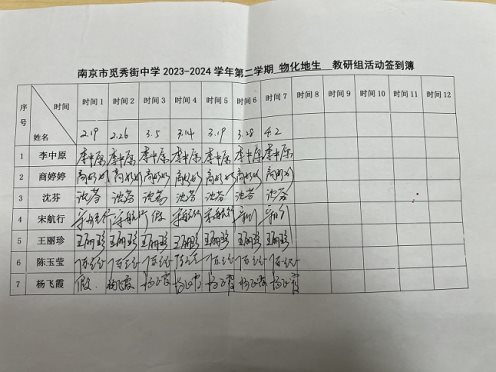 南京市觅秀街中学 2023-2024 学年第二学期 物化地生 教研组活动签到簿
序号 时间 姓名 时间 1 时间 2 时间 3 时间 4 时间 5 时间 6 时间 7 时间 8 时间 9 时间 10 时间 11 时间 12
2.19 2.26 3.5 3.14 3.19 3.28 4.2
1 李中原 李中原 李中原 李中原 李中原 李中原 李中原 李中原
2 商婷婷 商婷婷 商婷婷 商婷婷 商婷婷 商婷婷 商婷婷 商婷婷
3 沈芬 沈芬 沈芬 沈芬 沈芬 沈芬 沈芬 沈芬
4 宋航行 宋航行 宋航行 假 宋航行 宋航行
5 王丽珍 王丽珍 王丽珍 王丽珍 王丽珍 王丽珍 王丽珍 王丽珍
6 陈玉莹
7 杨飞霞 假 杨飞霞 杨飞霞 杨飞霞 杨飞霞 杨飞霞 杨飞霞